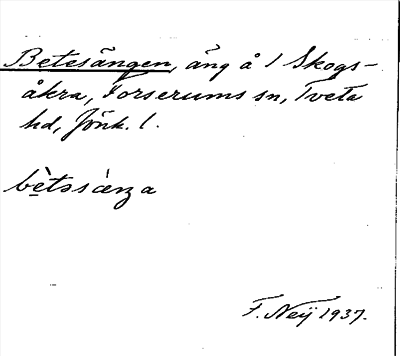 Betesängen, äng å 1 Skogs-
åkra, Forserums sn, Tveta
hd, Jönk. l.
bètəsæ̀nɡa
F. Neij 1937.